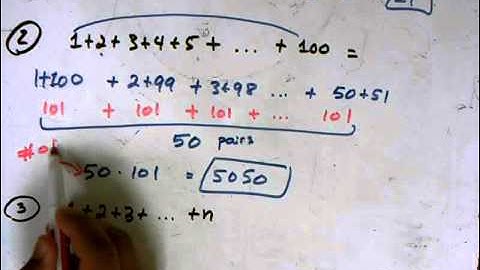 ② 1+2+3+4+5+ ... + 100 =
1+100 + 2+99 + 3+98 ... + 50+51
101 + 101 + 101 + ... 101
50 pairs
# of
50 · 101 = 5050
③ 1+2+3+ ... +n